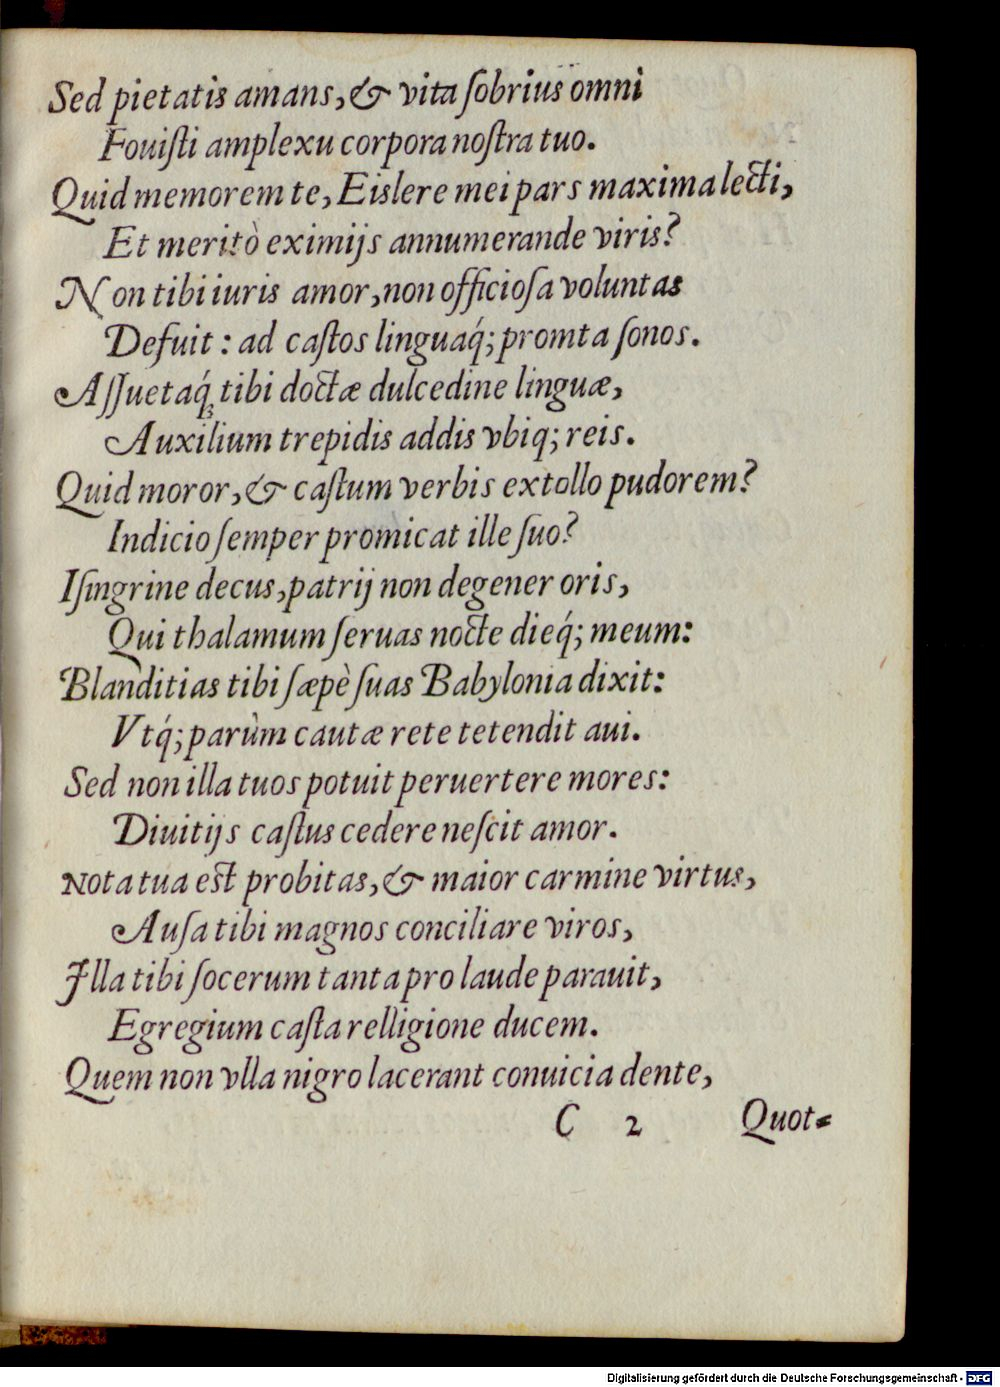 Sed pietatis amans, & vita ſobrius omni
Fouiſti amplexu corpora noſtra tuo.
Quid memorem te, Eislere mei pars maxima lecti,
Et meritò eximijs annumerande viris?
Non tibi iuris amor, non officioſa voluntas
Defuit: ad caſtos linguaq́; promta ſonos.
Aſſuetaq́ꝫ tibi doctæ dulcedine linguæ,
Auxilium trepidis addis vbiq; reis.
Quid moror, & caſtum verbis extollo pudorem?
Indicio ſemper promicat ille ſuo?
Iſingrine decus, patrij non degener oris,
Qui thalamum ſeruas nocte dieq́; meum:
Blanditias tibi ſæpè ſuas Babylonia dixit:
Vtq́; parùm cautæ rete tetendit aui.
Sed non illa tuos potuit peruertere mores:
Diuitijs caſtus cedere neſcit amor.
Nota tua est probitas, & maior carmine virtus,
Auſa tibi magnos conciliare viros,
Illa tibi ſocerum tanta pro laude parauit,
Egregium caſta relligione ducem.
Quem non vlla nigro lacerant conuicia dente,
C 2 Quot-
Digitalisierung gefördert durch die Deutsche Forschungsgemeinschaft - DFG